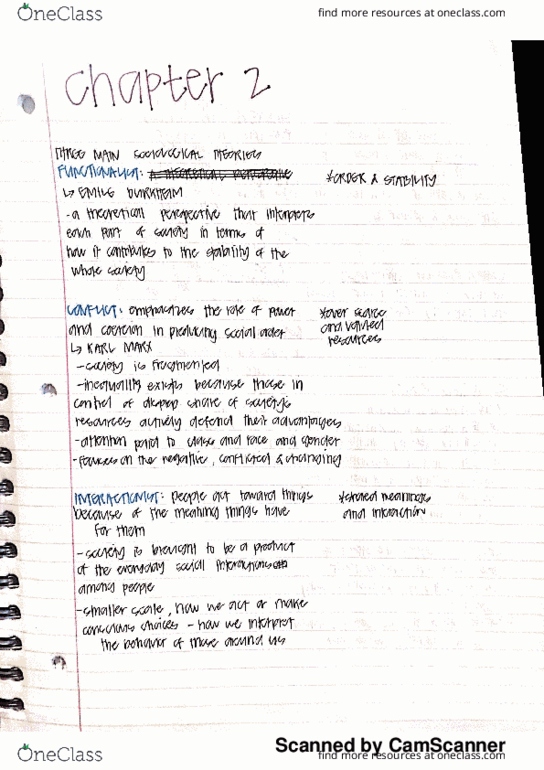 OneClass
find more resources at oneclass.com
chapter 2
THREE MAN SOCIOLOGICAL THEORIES
FUNCTIONALIST:
*ORDER & STABILITY
↳ EMILE DURKHEIM
-a theoretical perspective that interprets
each part of society in terms of
how it contributes to the stability of the
whole society
CONFLICT: emphasizes the role of power
*over scarce
and coercion in producing social order
and valued
resources
↳ KARL MARX
-society is fragmented
-inequality exists because those in
control of share of society's
resources actively defend their advantages
-attention paid to class and race and gender
-focuses on the negative, conflicted & changing
INTERACTIONIST: people act toward things
*shared meanings
because of the meaning things have
and interaction
for them
-society is thought to be a product
of the everyday social interactions
among people
-smaller scale, how we act or make
conscious choices - how we interpret
the behavior of those around us
Scanned by CamScanner
OneClass
find more resources at oneclass.com